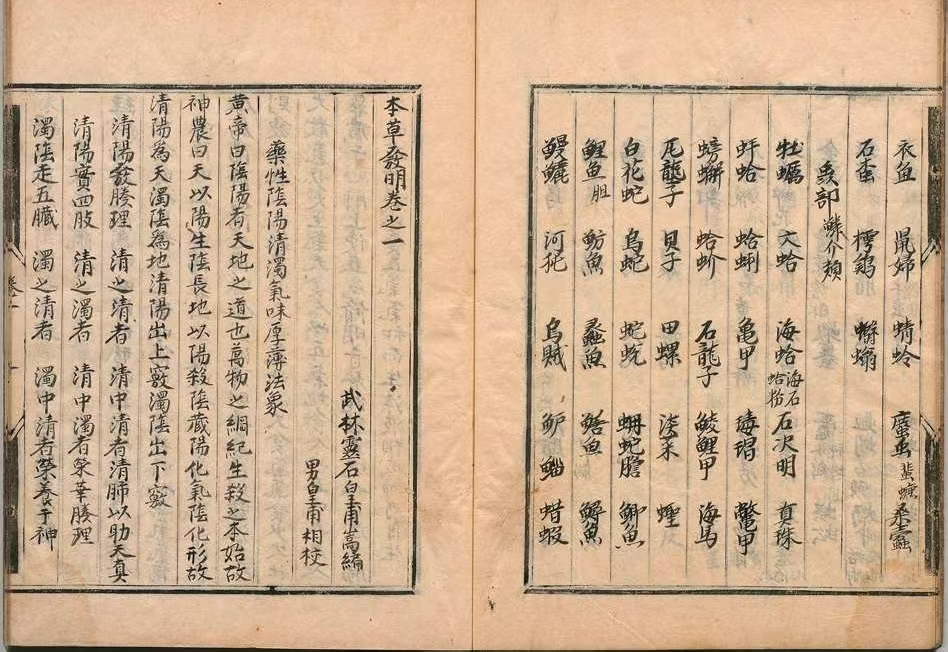 衣魚 鼠婦 蜻蛉 䗪虫 蜚蠊 桑蠹
石蚕 樗鶏 蠮螉
虫部 鱗介類
牡蠣 文蛤 海蛤 海石 蛤粉 石决明 真珠
蚌蛤 蛤蜊 亀甲 瑇瑁 鱉甲
螃蠏 蛤蚧 石龍子 鯪鯉甲 海馬
瓦龍子 貝子 田螺 淡菜 蟶
白花蛇 烏蛇 蛇蛻 蚺蛇膽 鯽魚
鯉魚胆 魴魚 鱻魚 鱔魚 鱘魚
鰻鱺 河㹠 烏賊 鲈 鯔 蜡蝦
本草發明卷之一
武林靈石皇甫嵩編
男皇甫相校
藥性陰陽清濁氣味厚薄法象
黄帝曰陰陽者天地之道也萬物之綱紀生殺之本始故
神農曰天以陽生陰長地以陽殺陰藏陽化氣陰化形故
清陽為天濁陰為地清陽出上竅濁陰出下竅
清陽發腠理 清之清者 清中清者清肺以助天真
清陽實四肢 清之濁者 清中濁者榮華腠理
濁陰走五臟 濁之清者 濁中清者榮養于神